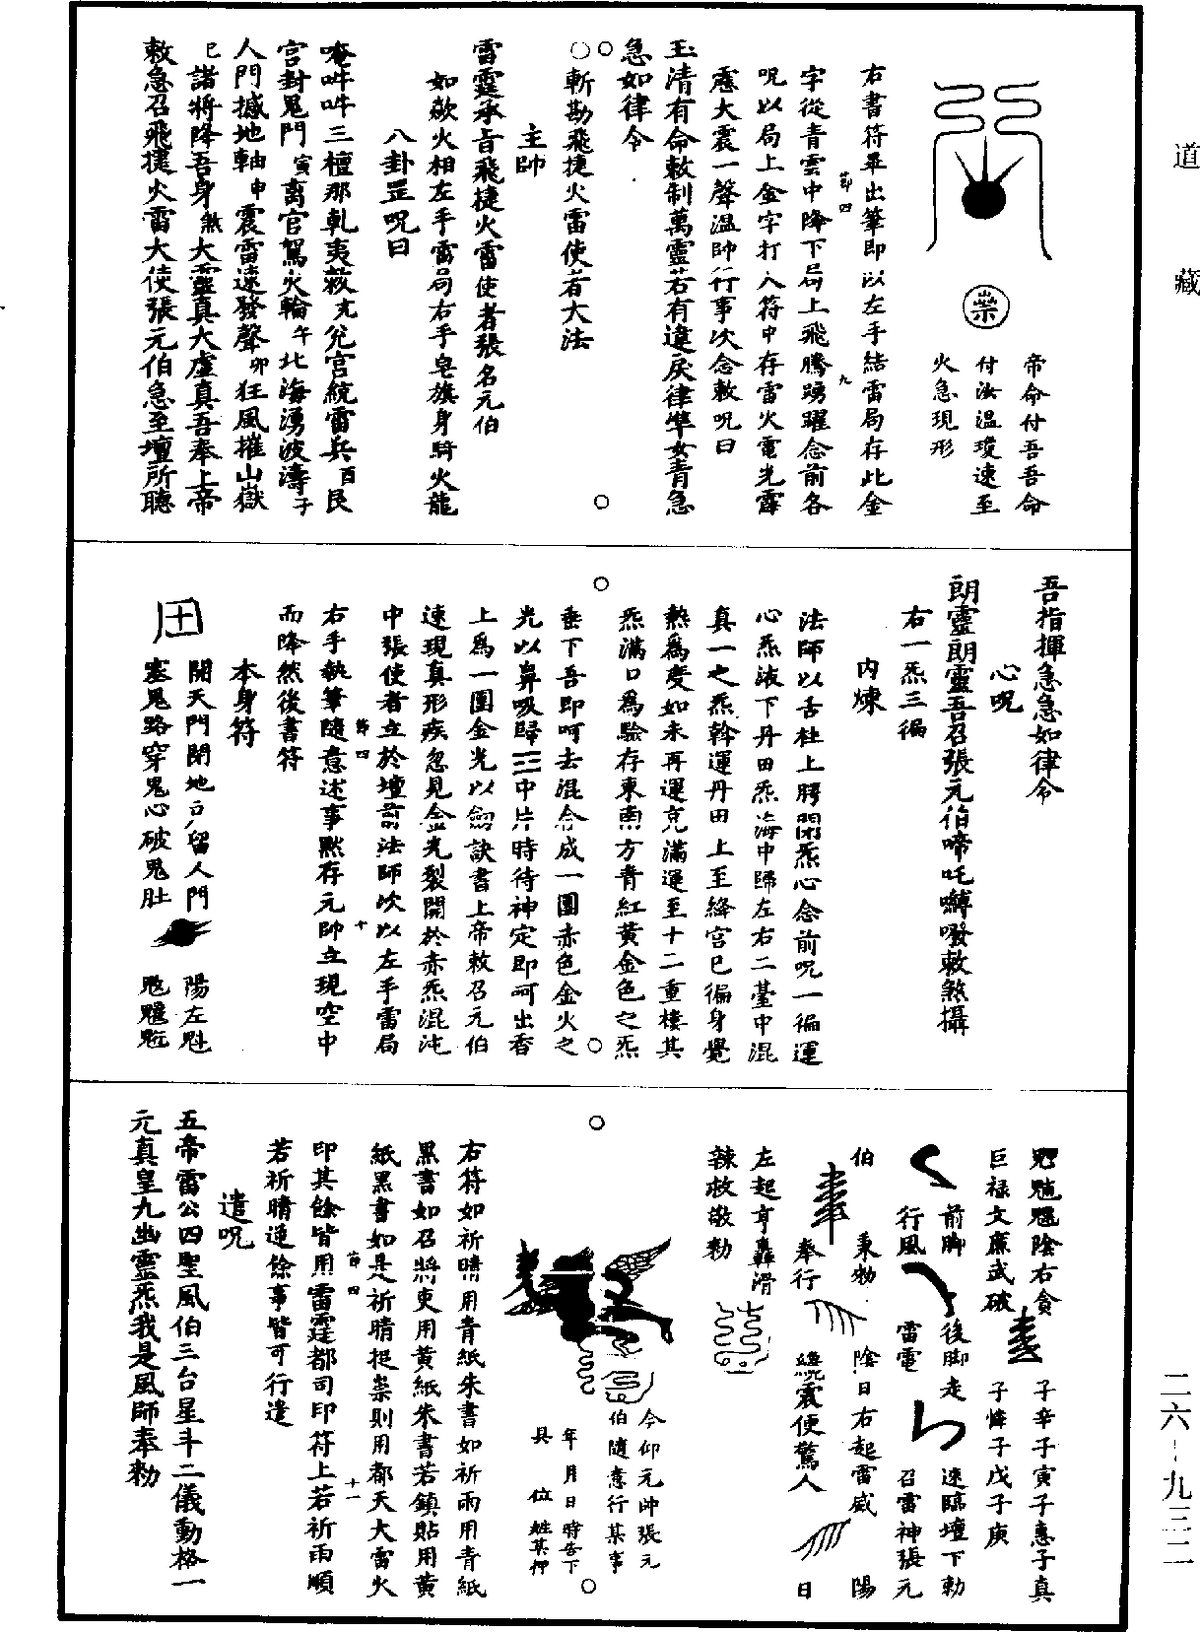 道藏
二六-九三二
帝命付吾吾命
付汝温瓊速至
火急現形
右書符畢出筆即以左手結雷局存此金
字從青雲中降下局上飛騰踴躍念前各
呪以局上金字打入符中存雷火電光霹
靂大震一聲温帥行事次念敕呪曰
玉清有命敕制萬靈若有違戾律準女青急
急如律令
斬勘飛捷火雷使者大法
主帥
雷霆承旨飛捷火雷使者張名元伯
如歘火相左手雷局右手皂旗身騎火龍
八卦罡呪曰
唵吽吽三檀那軋夷敕 兊宮統雷兵酉艮
宮封鬼門寅离宮駕火輪午北海湧波濤子
人門撼地軸申震雷速發聲卯狂風摧山嶽
巳諸將降吾身煞大靈真大虛真吾奉上帝
敕急召飛捷火雷大使張元伯急至壇所聽
吾指揮急急如律令
心呪
朗靈朗靈吾召張元伯啼吒㗘嚩敕煞攝
右一炁三徧
內煉
法師以舌柱上腭閉炁心念前呪一徧運
心炁液下丹田炁海中歸左右二臺中混
真一之炁斡運丹田上至絳宮已徧身覺
熱爲度如未再運充滿運至十二重樓其
炁滿口爲驗存東南方青紅黃金色之炁
垂下吾即呵去混合成一團赤色金火之
光以鼻吸歸三中片時待神定即呵出香
上爲一圍金光以劒訣書上帝敕召元伯
速現真形疾忽見金光裂開於赤炁混沌
中張使者立於壇前法師次以左手雷局
右手執筆隨意述事黙存元帥立現空中
而降然後書符
本身符
開天門閉地户留人門
塞鬼路穿鬼心破鬼肚
陽左魁
陰右貪
巨祿文廉武破
子辛子寅子惠子真
子惟子戊子庚
前脚
後脚走
速臨壇下勅
行風
雷電
召雷神張元
伯
秉勅
陰日右起雷威
陽
奉行
震便驚人
日
左起亨轟滑
辣敕敬勅
今仰元帥張元
伯隨意行某事
年月日時告下
具位姓某押
右符如祈晴用青紙朱書如祈雨用青紙
黑書如召將吏用黃紙朱書若鎮貼用黃
紙黑書如是祈晴捉祟則用都天大雷火
印其餘皆用雷霆都司印符上若祈雨順
若祈晴逆餘事皆可行遣
遣呪
五帝雷公四聖風伯三台星斗二儀動格一
元真皇九幽靈炁我是風師奉勅